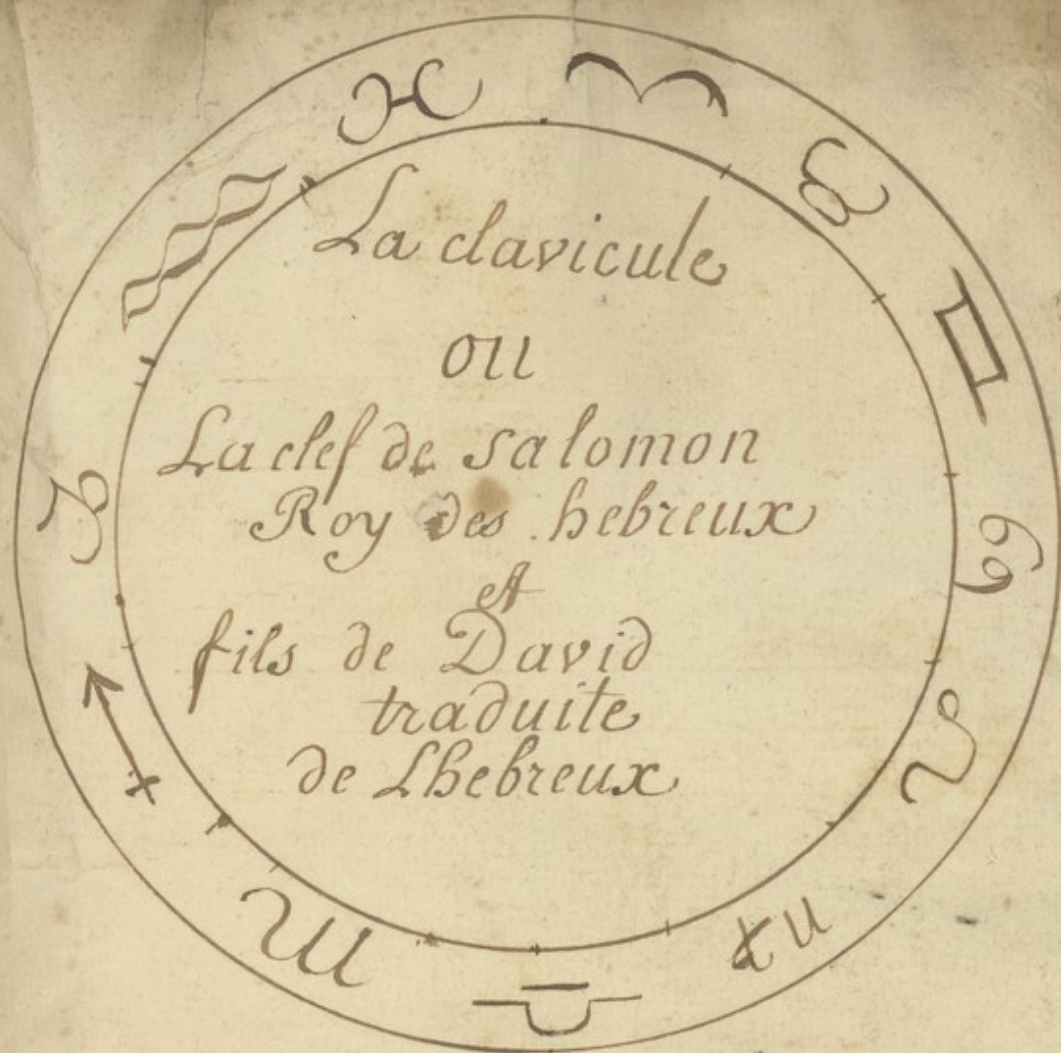 La clavicule
ou
La clef de salomon
Roy des hebreux
et
fils de David
traduite
de Lhebreux